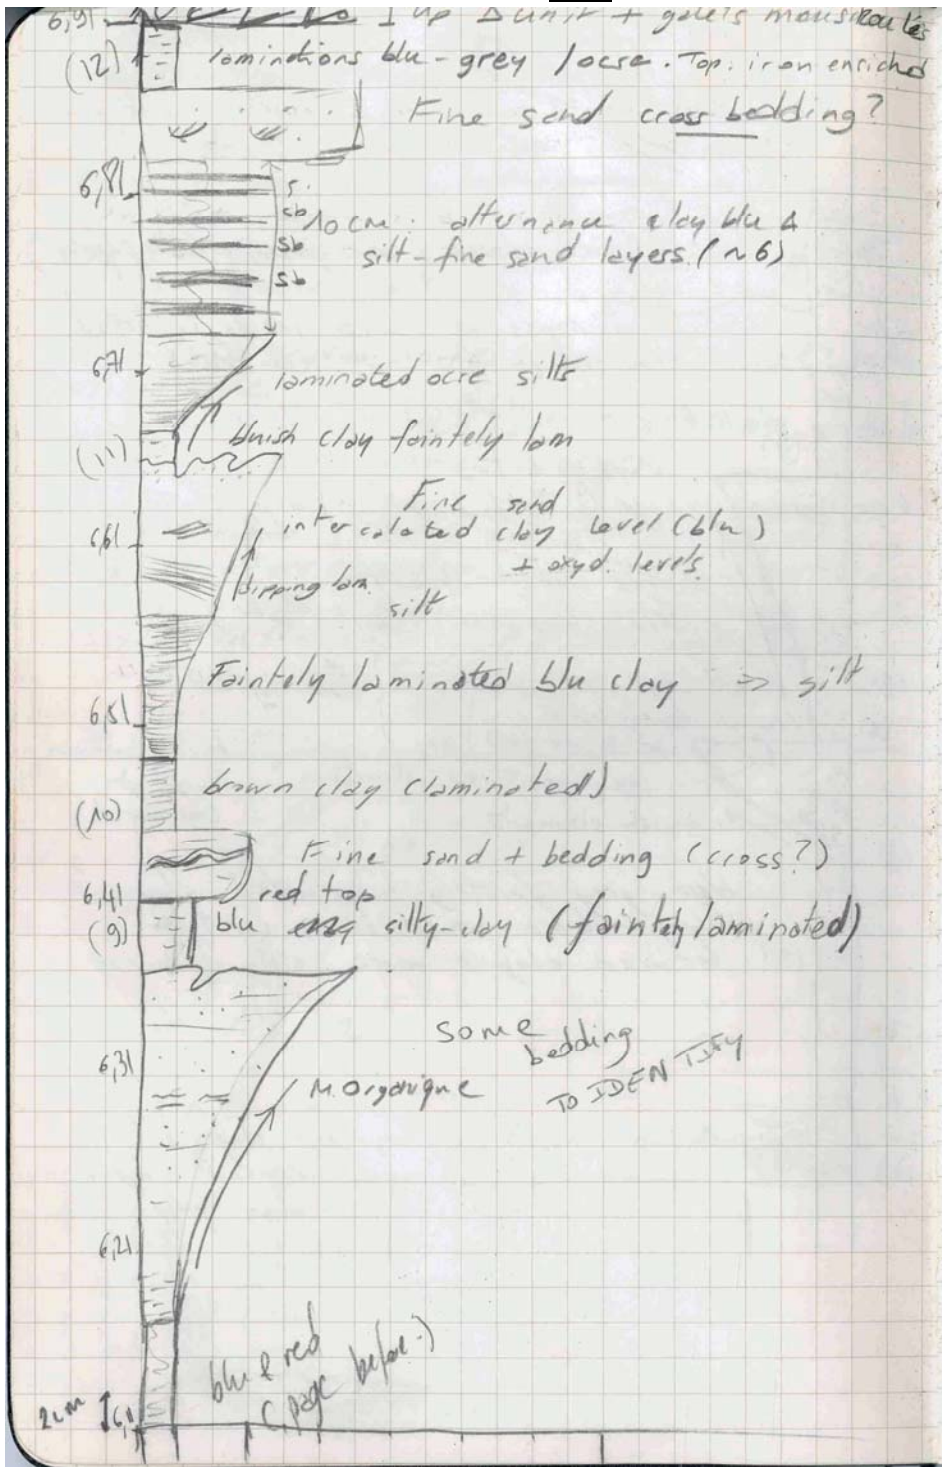 6,91 1 up Δ unit + galets mous roulés
(12) laminations blu-grey / ocre. Top: iron enriched
Fine sand cross bedding?
6,81
cb 10 cm: alternance clay blu &
sb silt-fine sand layers (~6)
sb
6,71
laminated ocre silts
(11) bluish clay faintely lam
Fine sand
6,61 intercalated clay level (blu)
+ oxyd. levels.
dipping lam.
silt
Faintely laminated blu clay => silt
6,51
brown clay (laminated)
(10)
Fine sand + bedding (cross?)
6,41 red top
(9) blu silty-clay (faintely laminated)
some
bedding
TO IDENTIFY
6,31
M. Organique
6,21
blu & red
(page before)
2cm 6,1